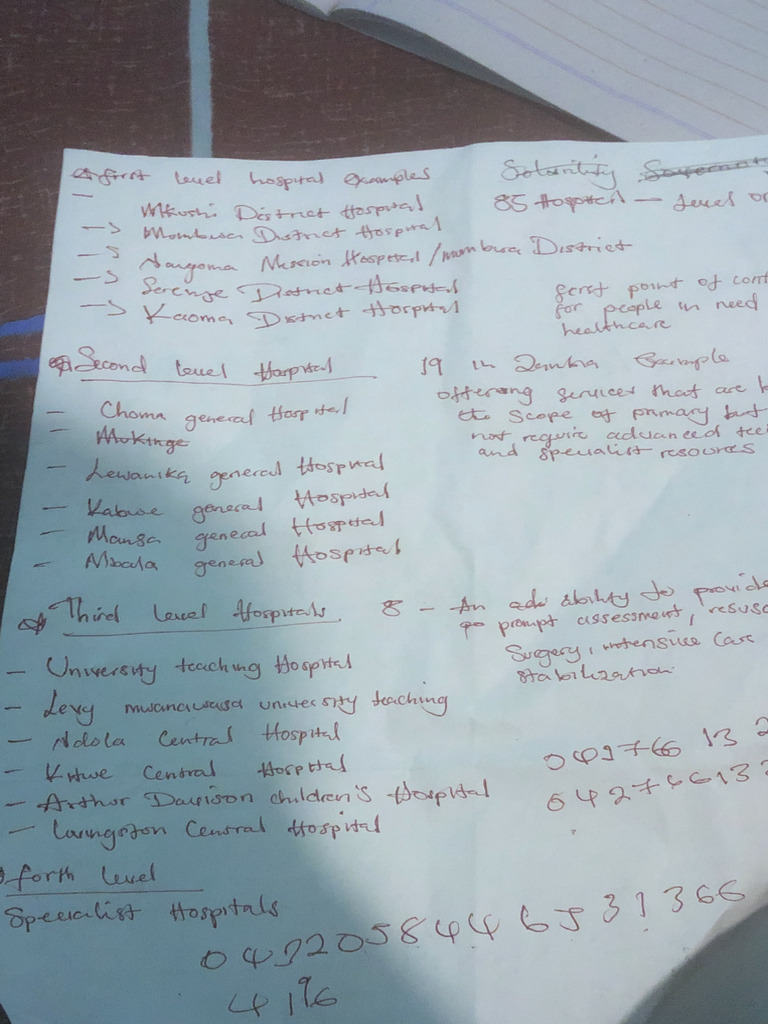 first level hospital examples
85 Hospital - Level
Mkushi District Hospital
-> Mombwa District Hospital
-> Nangoma Mission Hospital / mumbwa District
-> Serenje District Hospital
-> Kaoma District Hospital
ferst point of cont
for people in need
healthcare
Second level Hospital
19 in Zambia Example
offereng services that are b
the scope of primary but
not require advanced tec
and specialist resources
- Choma general Hospital
- Mukinge
- Lewanika general Hospital
- Kabwe general Hospital
- Mansa general Hospital
- Mbala general Hospital
Third level Hospitals
8 - An ability to provide
prompt assessment, resusc
Surgery, intensive Care
stabilization.
- University teaching Hospital
- Levy mwanawasa university teaching
- Ndola Central Hospital
- Kitwe Central Hospital
- Arthur Davison children's Hospital
- Livingston Central Hospital
forth level
Specialist Hospitals